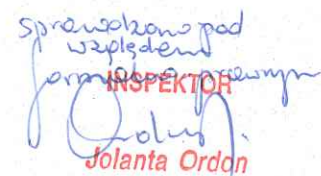 sprawdzono pod
względem
formalno-prawnym
INSPEKTOR
Jolanta Ordon